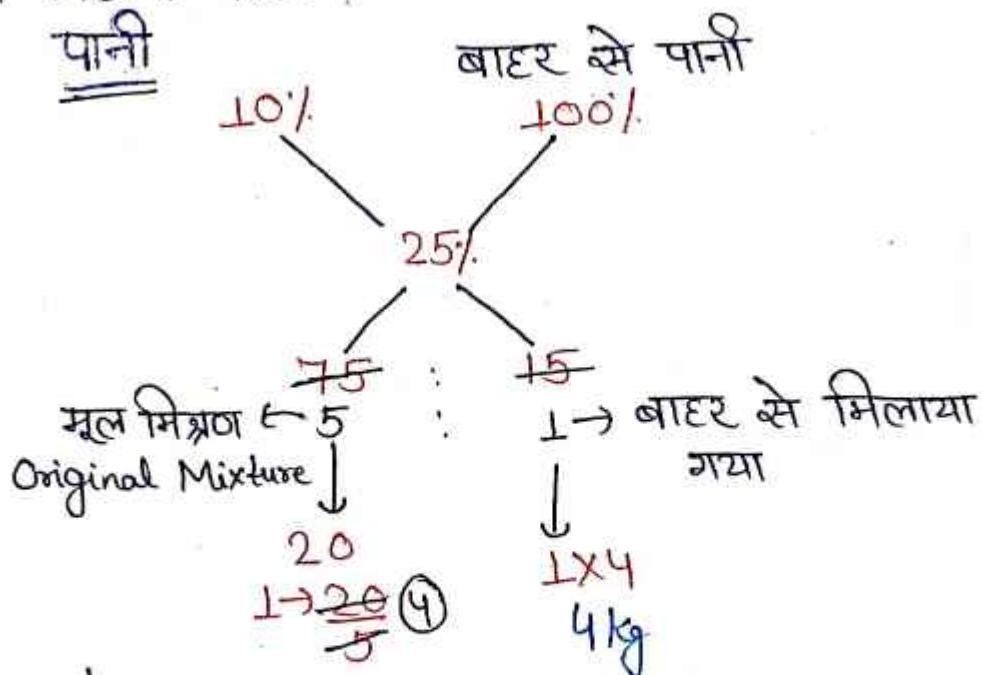 पानी
बाहर से पानी
10% 100%
25%
75 : 15
मूल मिश्रण ← 5 : 1 → बाहर से मिलाया
Original Mixture गया
20 1×4
1→ 20/5 (4) 4 kg